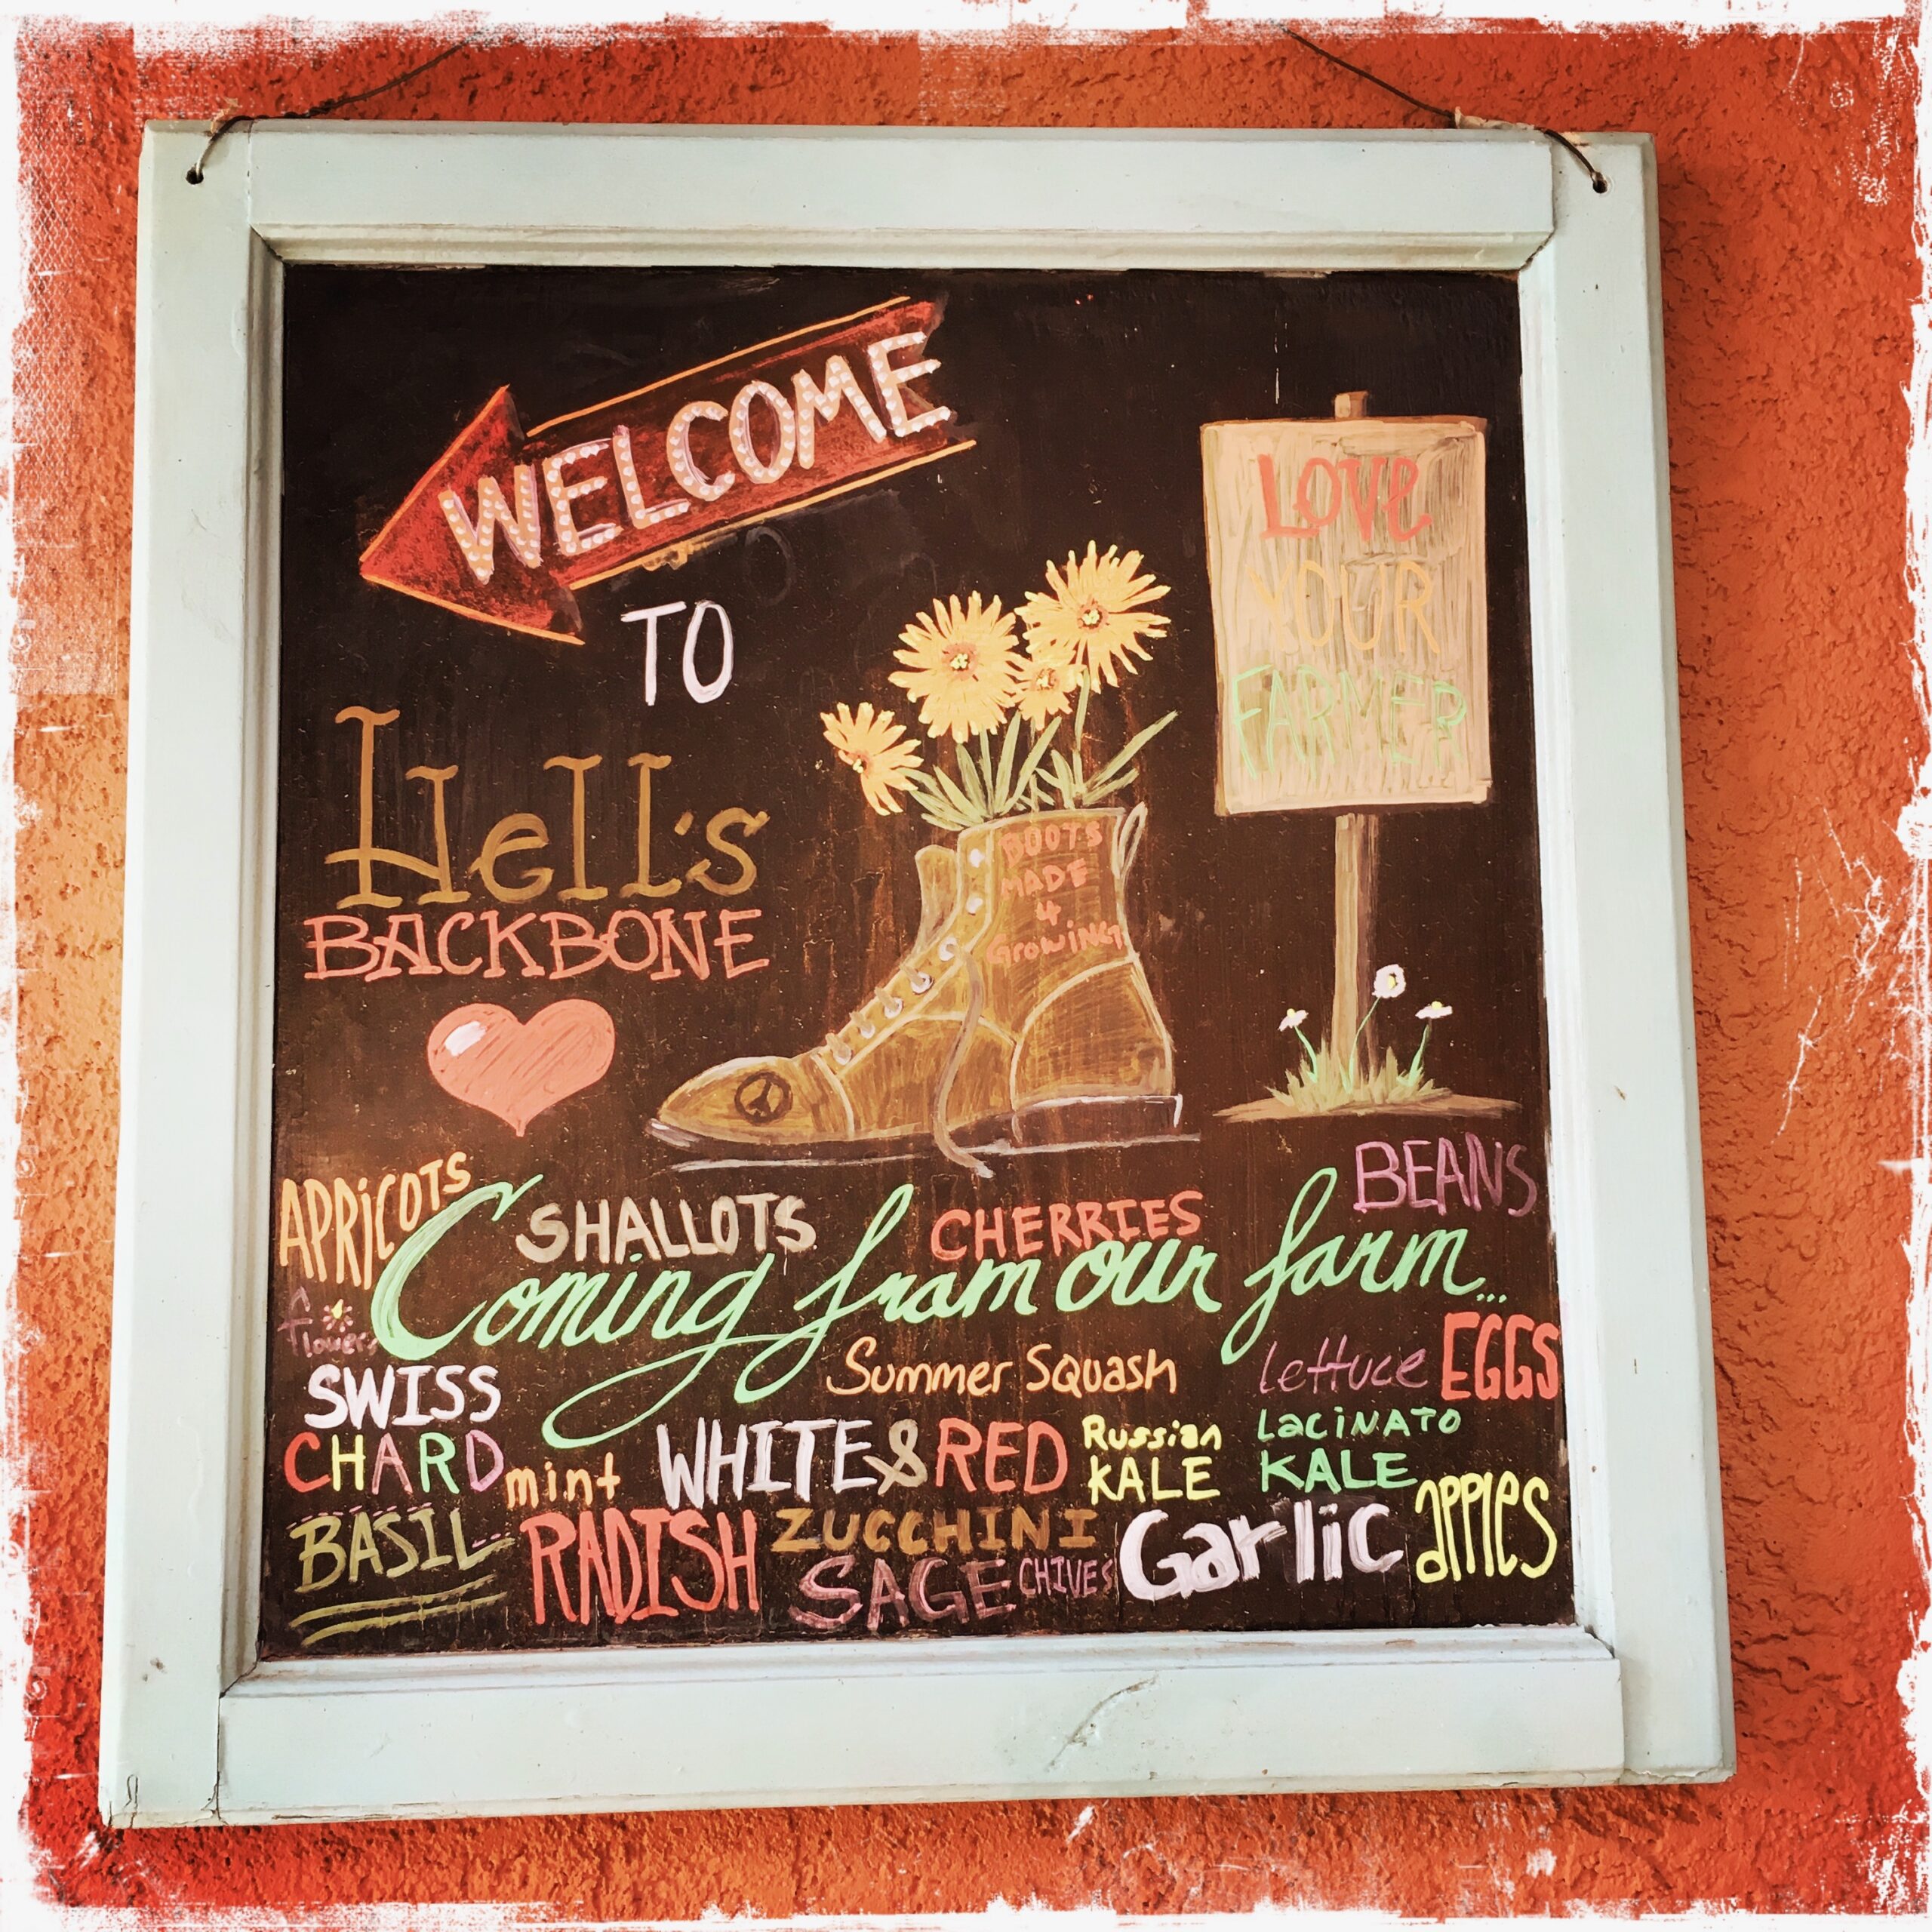 WELCOME
TO
Hell's
BACKBONE
LOVE
YOUR
FARMER
BOOTS
MADE
4
GROWING
APRICOTS
SHALLOTS
CHERRIES
BEANS
Coming from our farm...
flowers
Summer Squash
lettuce EGGS
SWISS
CHARD
mint
WHITE & RED
Russian
KALE
LACINATO
KALE
apples
BASIL
RADISH
ZUCCHINI
SAGE
CHIVES
Garlic